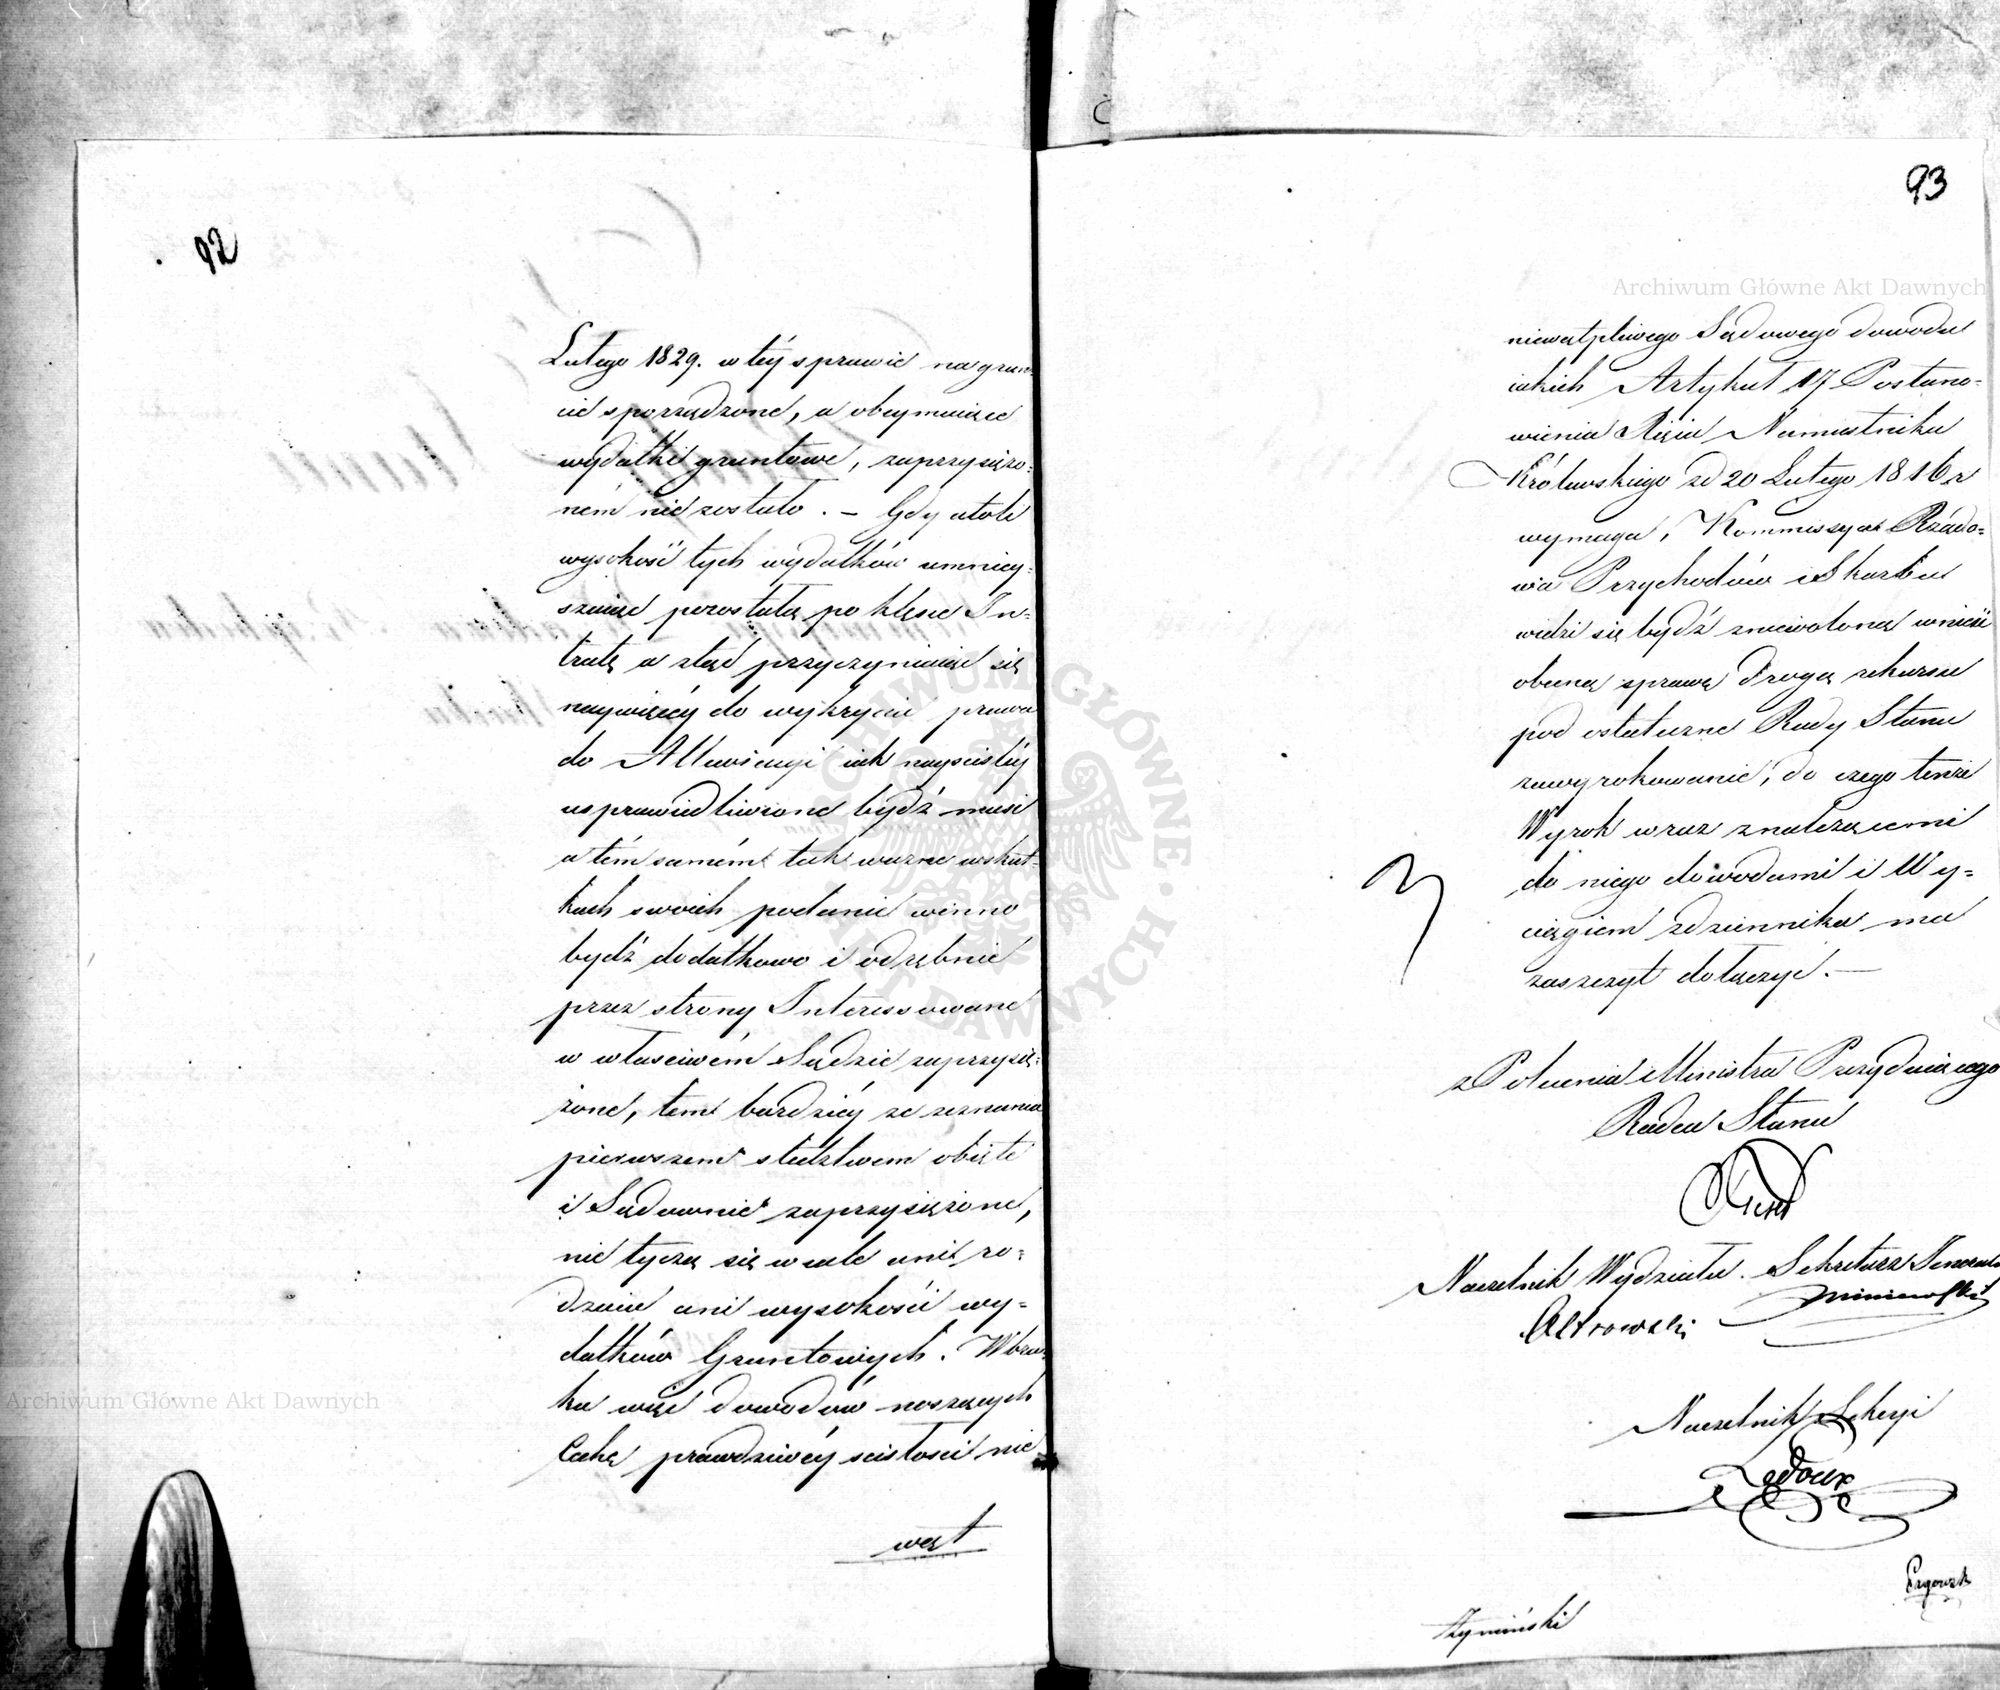 92
Lutego 1829. w téy sprawie na grun=
cie sporządzone, a obeymuiące
wydatki gruntowe, zaprzysiężo=
ném nie zostało. — Gdy atoli
wysokość tych wydatków umniey=
szaiąc pozostałą po klęsce In=
tratę a ztąd przyczyniaiąc się
naywięcéy do wykrycia prawa
do Allewiacyi iak nayściśléy
usprawiedliwione bydź musi
a tém samém tak ważne w skut=
kach swoich podanie winno
bydź dodatkowo i odrębnie
przez strony Interessowane
w właściwém Sądzie zaprzysię=
żone, tem bardziéy ze zeznania
pierwszem śledztwem obięte
i Sądownie zaprzysiężone,
nie tyczą się wcale ani ro=
dzaiu ani wysokości wy=
datków Gruntowych. W bra=
ku więc dowodów noszących
Cechę prawdziwéy ścisłości nie
wąt
93
niewątpliwego Sądowego dowodu
iakich Artykuł 17 Postano=
wienia Xięcia Namiestnika
Królewskiego zd 20 Lutego 1816 r
wymaga, Kommissya Rządo=
wa Przychodów i Skarbu
widzi się bydź zniewoloną wnieść
obecną sprawę drogą rekursu
pod ostateczne Rady Stanu
zawyrokowanie, do czego tenże
Wyrok wraz z należącemi
do niego dowodami i Wy=
ciągiem z dziennika ma
zaszczyt dołączyć. —
z Polecenia Ministra Prezyduiącego
Radca Stanu
Naczelnik Wydziału. Sekretarz Jeneralny
Naczelnik Sekcyi
Ledoux
Archiwum Główne Akt Dawnych
Archiwum Główne Akt Dawnych
ARCHIWUM GŁÓWNE AKT DAWNYCH